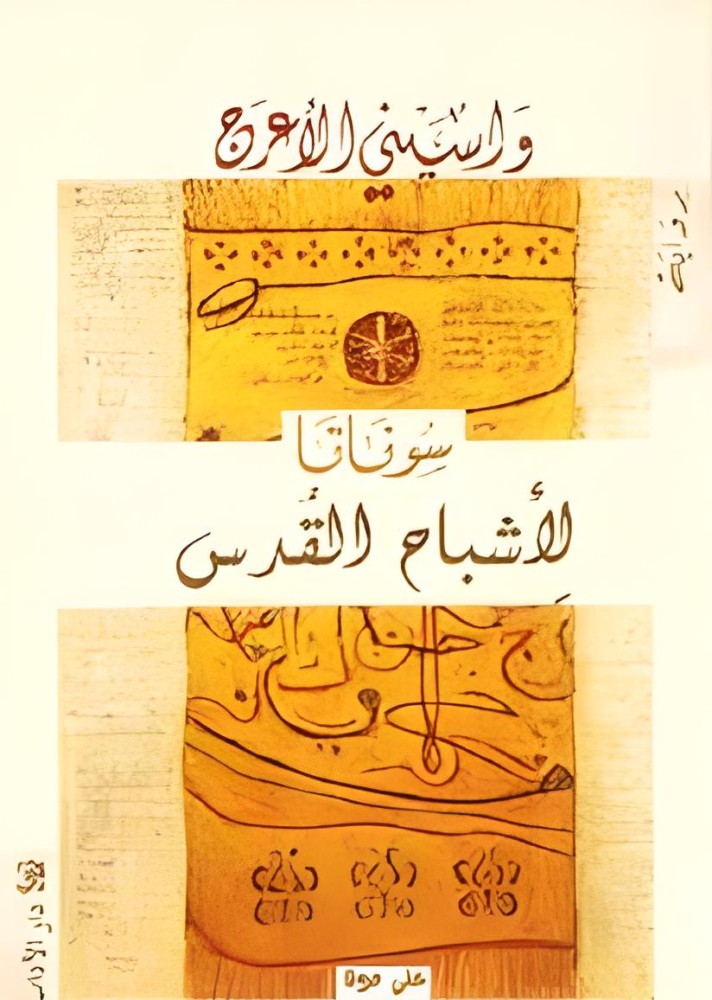 وَاسِيني الأعرَج
رواية
سُونَاتَا
لِأشباح القُدس
دار الآداب